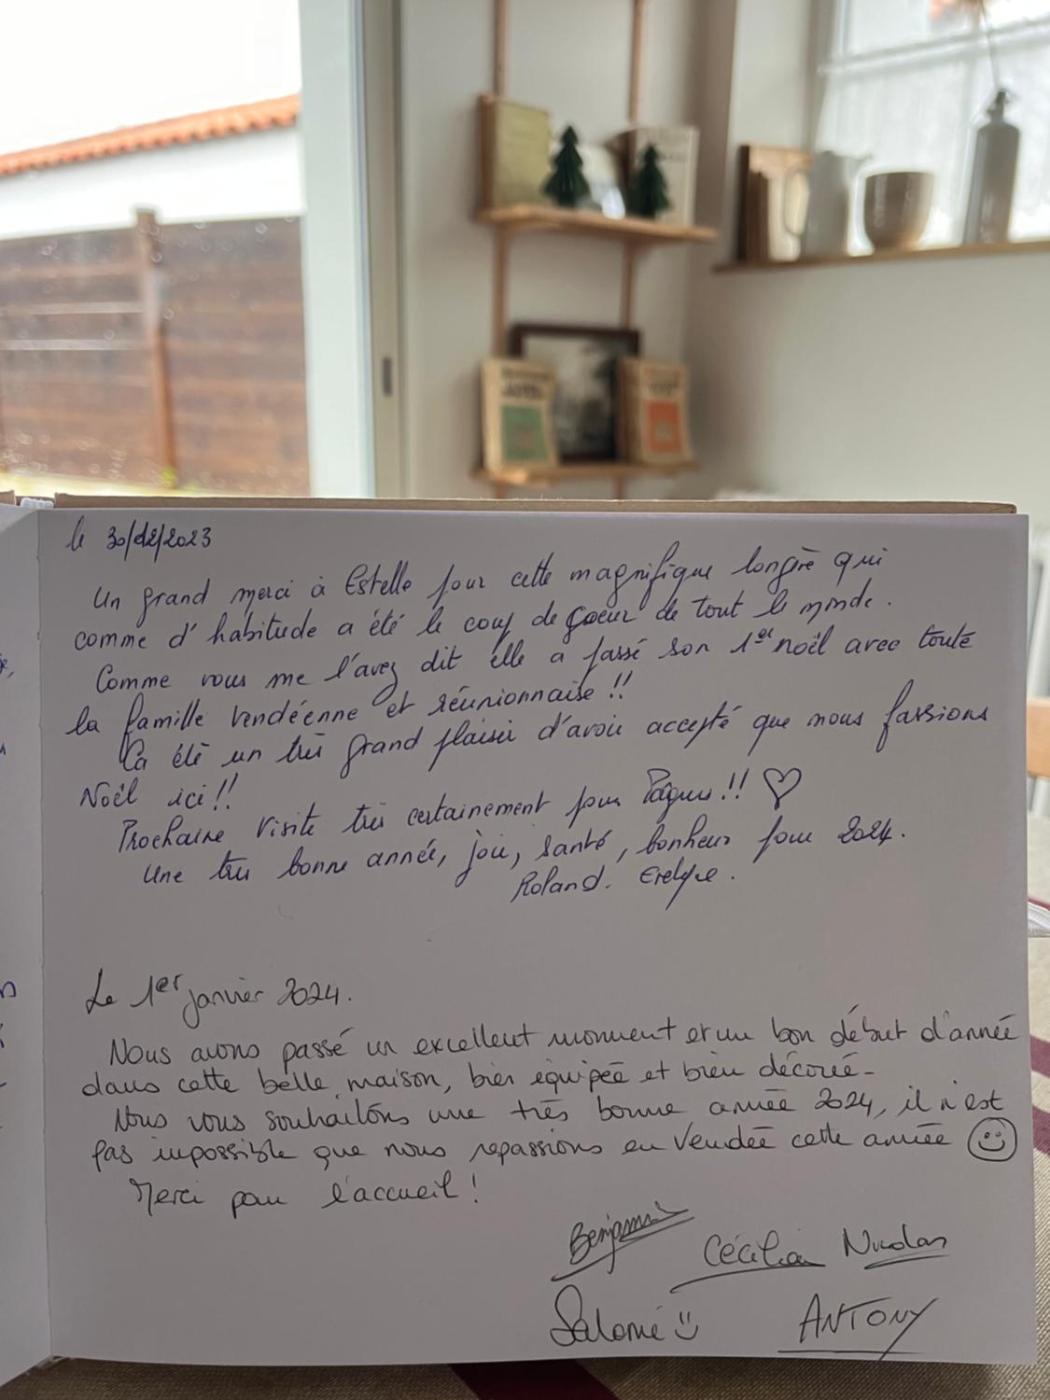 le 30/12/2023
Un grand merci à Estelle pour cette magnifique longère qui
comme d'habitude a été le coup de coeur de tout le monde.
Comme vous me l'avez dit elle a passé son 1er noël avec toute
la famille Vendéenne et réunionnaise !!
Ca été un très grand plaisir d'avoir accepté que nous fassions
Noël ici !!
Prochaine visite très certainement pour Pâques !! ♡
Une très bonne année, joie, santé, bonheur pour 2024.
Roland. Evelyne.
Le 1er janvier 2024.
Nous avons passé un excellent moment et un bon début d'année
dans cette belle maison, bien équipée et bien décorée.
Nous vous souhaitons une très bonne année 2024, il n'est
pas impossible que nous repassions en Vendée cette année ☺
Merci pour l'accueil !
Benjamin Cécilia Nicolas
Salomé ANTONY